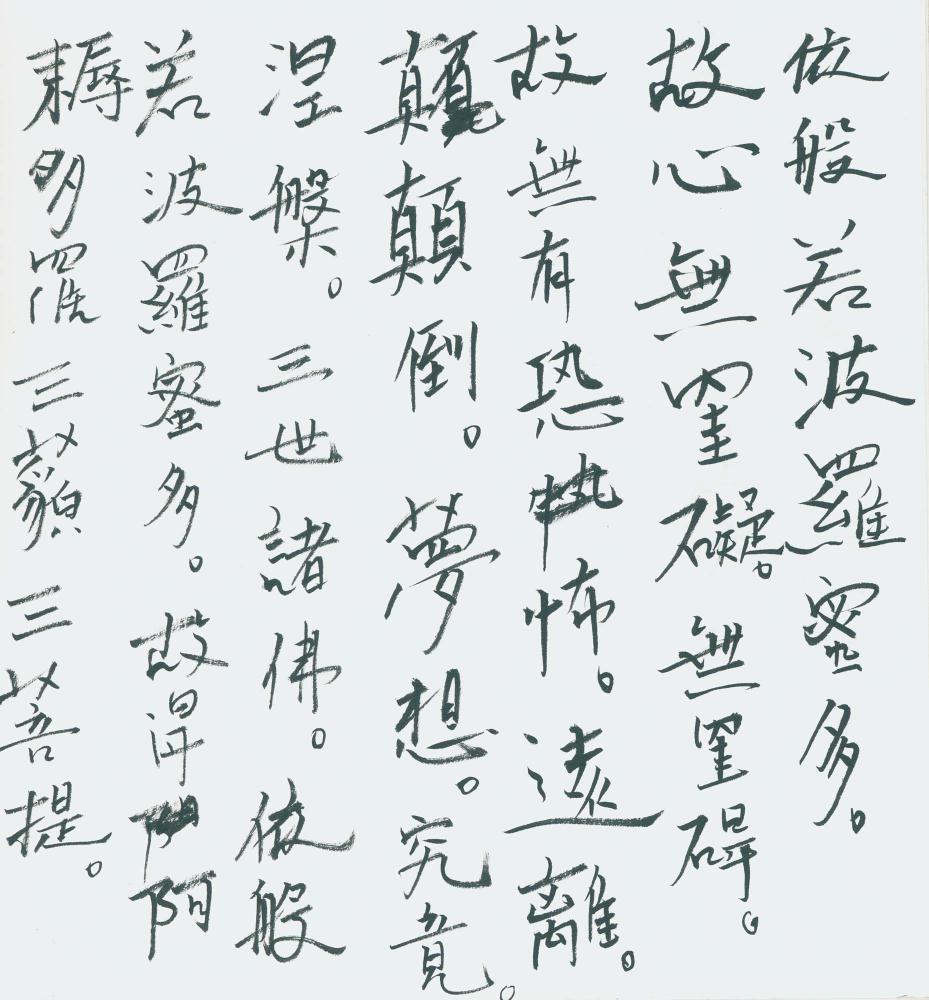 依般若波羅蜜多。
故心無罣礙。無罣碍。
故無有恐怖。遠離。
顛倒。夢想。究竟。
涅槃。三世諸佛。依般
若波羅蜜多。故得阿
耨多羅三藐三菩提。